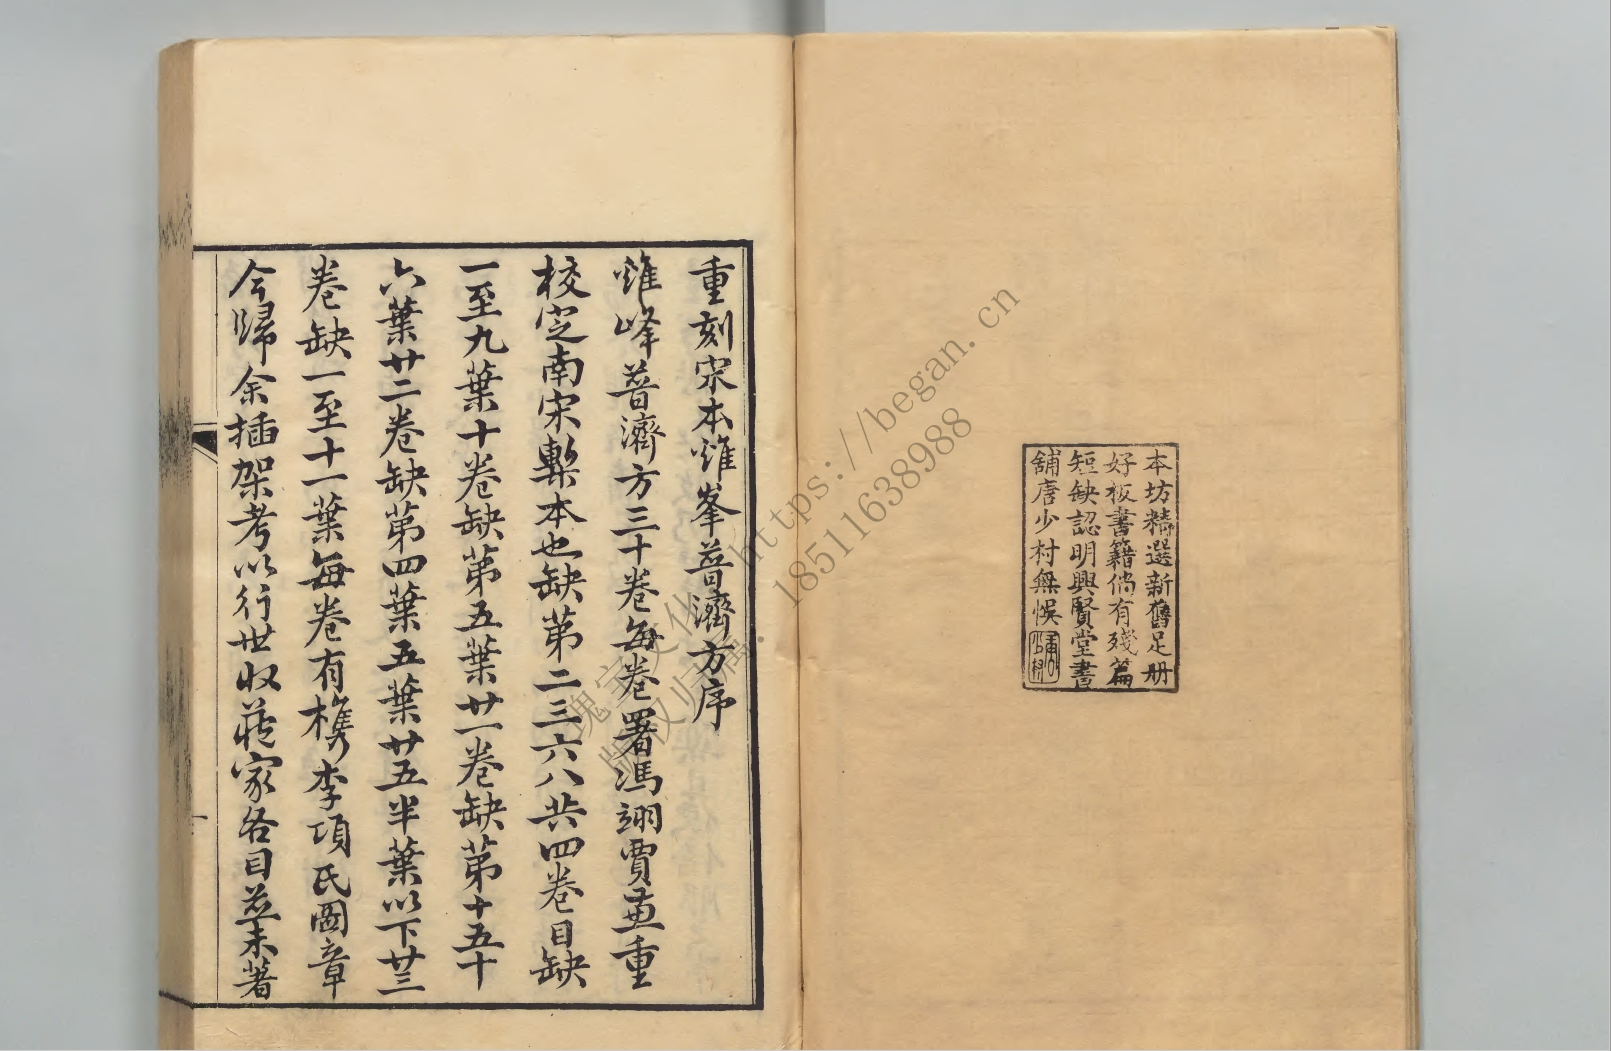 本坊精選新舊足冊
好板書籍倘有殘篇
短缺認明興賢堂書
舖唐少村無悞
重刻宋本雞峯普濟方序
雞峰普濟方三十卷每卷署馮翊賈兼重
校定南宋槧本也缺第二三六八共四卷目缺
一至九葉十卷缺第五葉廿一卷缺第十五十
六葉廿二卷缺第四葉五葉廿五半葉以下廿三
卷缺一至十一葉每卷有檇李項氏圖章
今歸余插架考以行世收藏家各目並未著
https://began.cn
18511638988
瑰宝文化
版权归属: